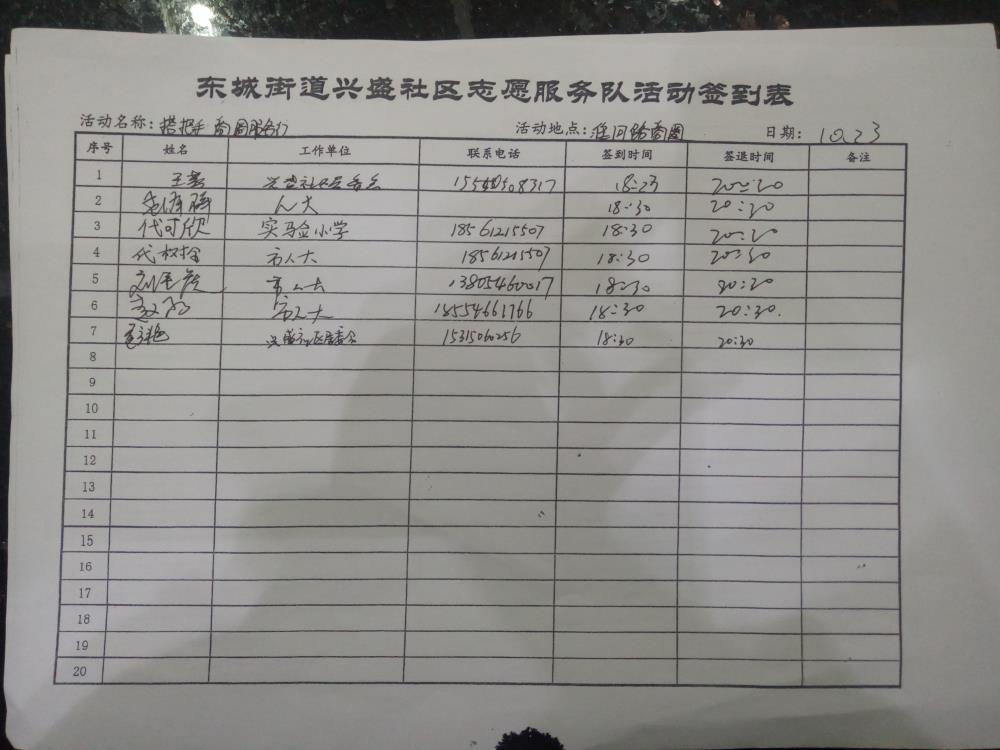 东城街道兴盛社区志愿服务队活动签到表
活动名称: 搭把手 商圈服务行 活动地点: 商圈 日期: 10.23
序号 姓名 工作单位 联系电话 签到时间 签退时间 备注
1 兴盛社区居委会 18:23 20:20
2 人大 18:30 20:30
3 代可欣 实验小学 18561215507 18:30 20:20
4 市人大 18561215507 18:30 20:30
5 市人大 13805460017 18:30 20:30
6 市人大 18554661766 18:30 20:30.
7 兴盛社区居委会 15315060256 18:30 20:30
8
9
10
11
12
13
14
15
16
17
18
19
20